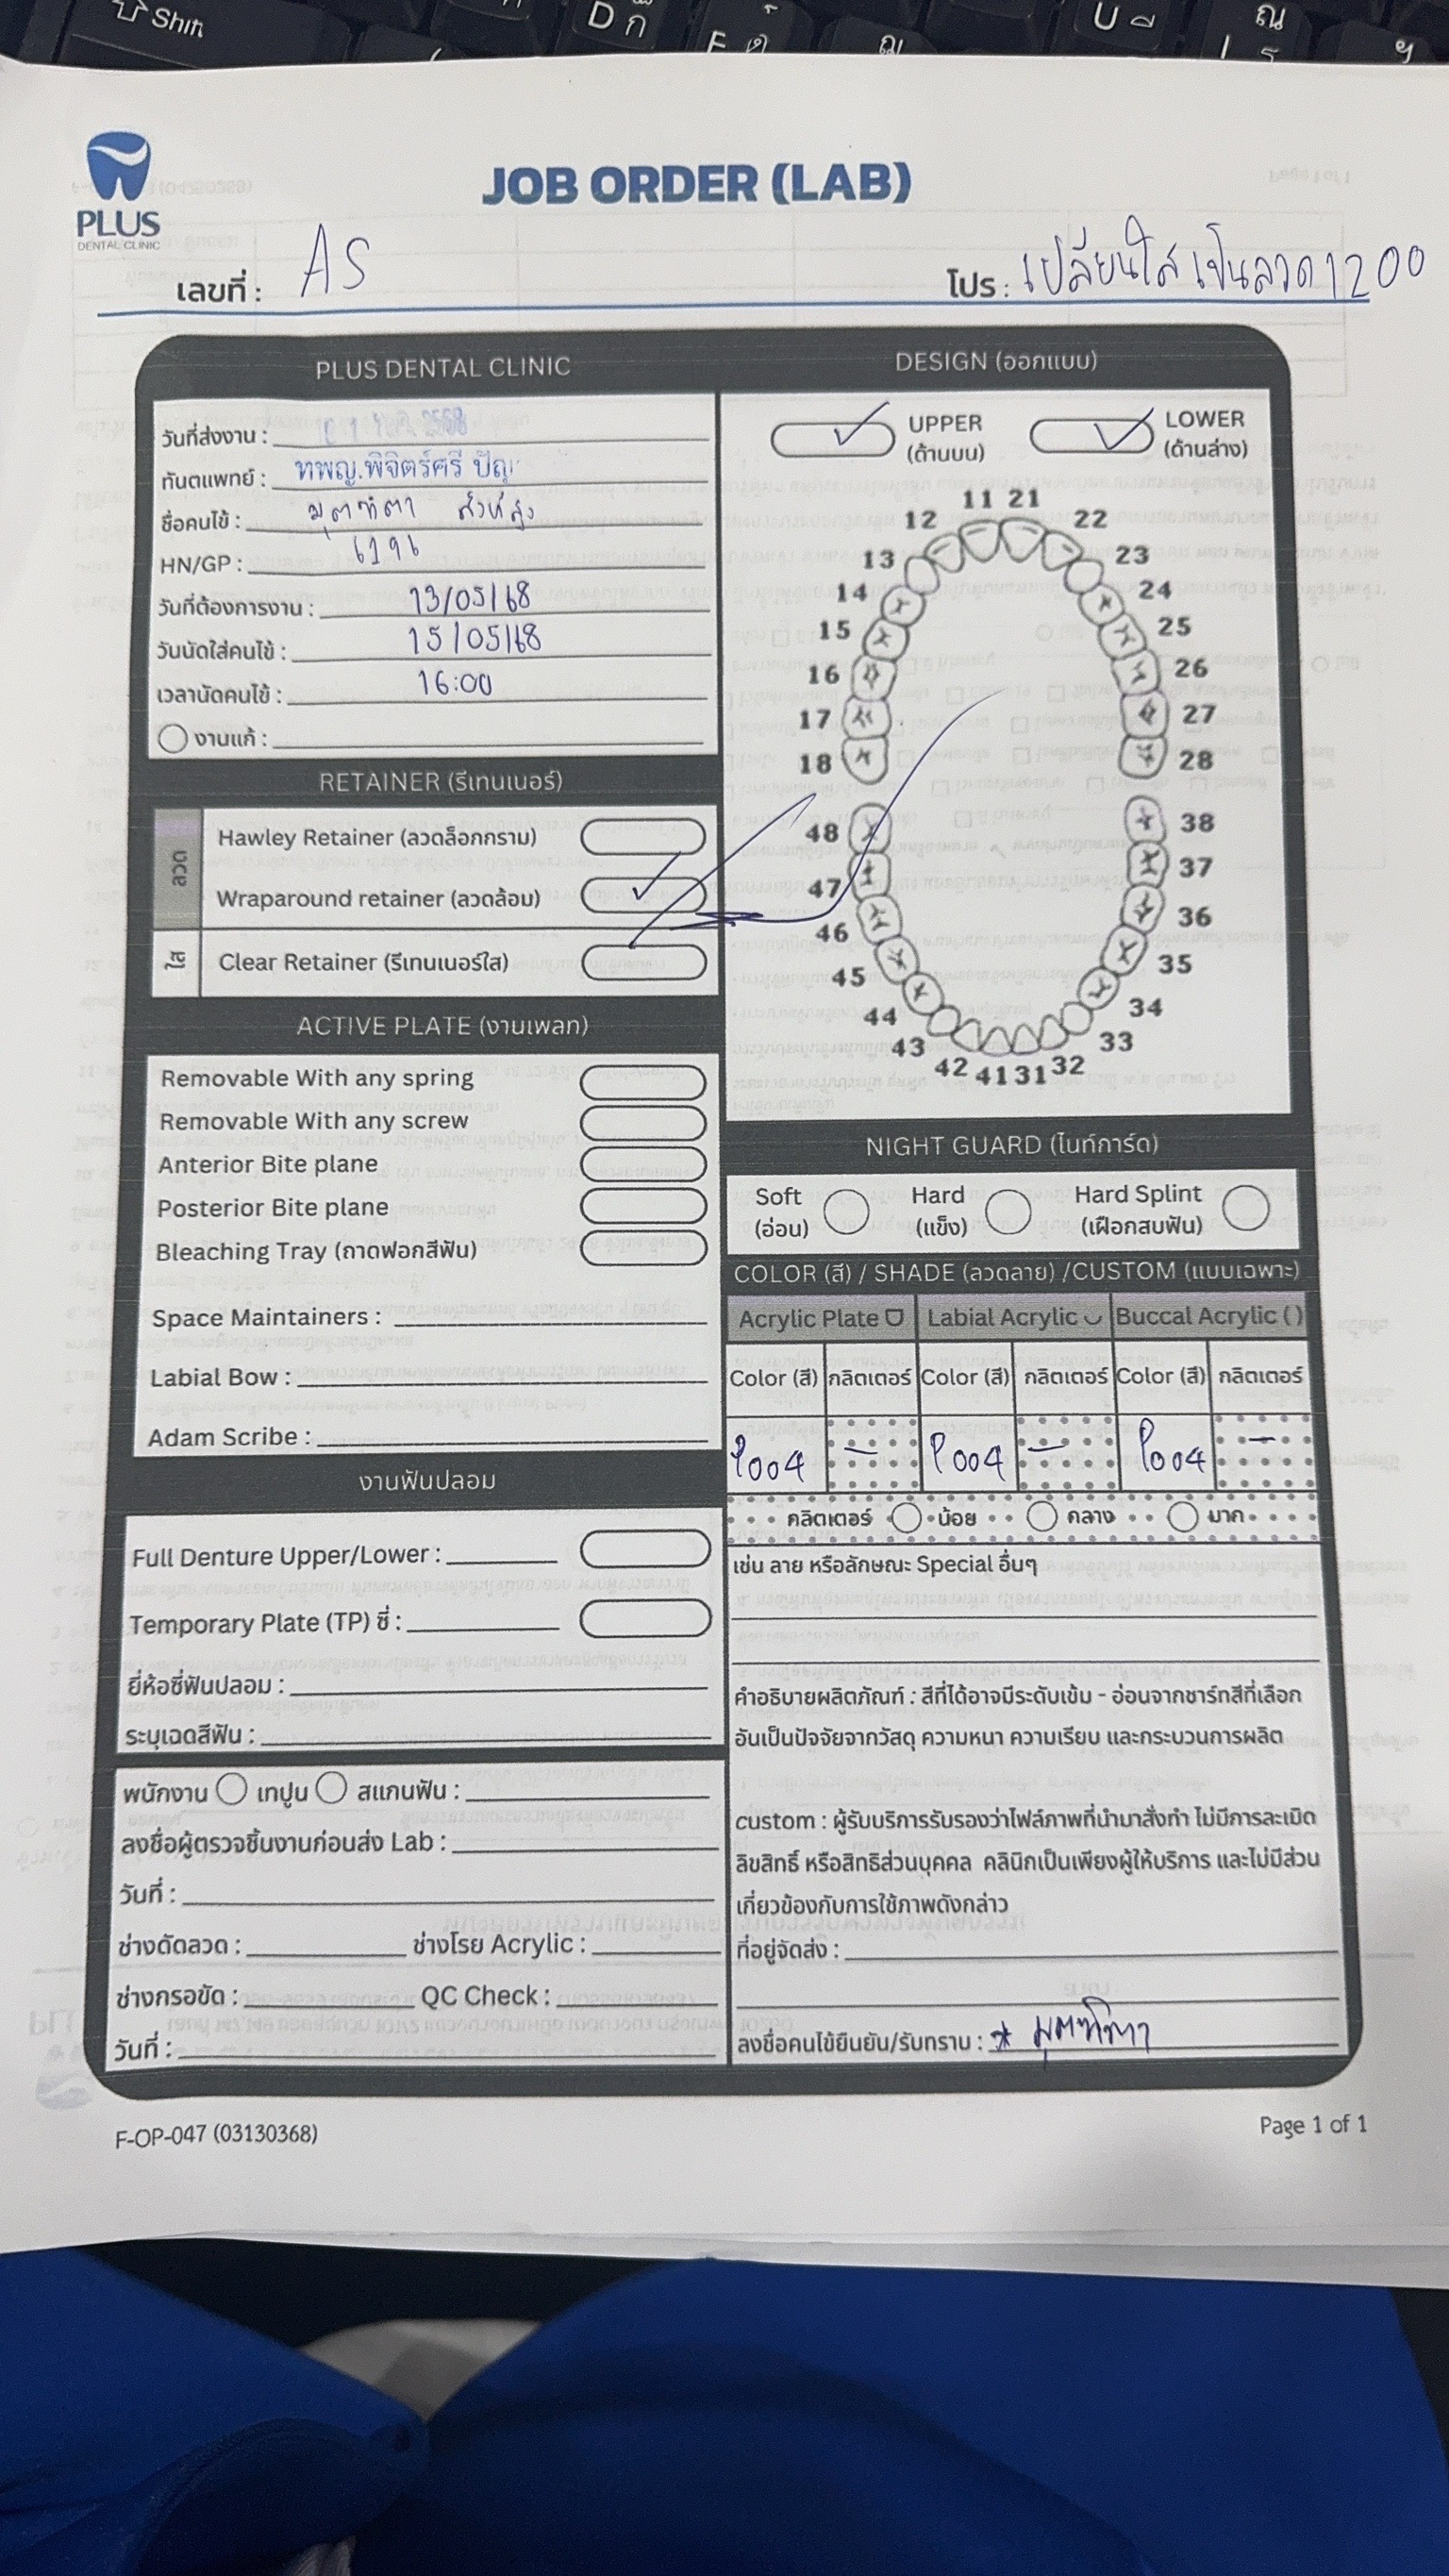 JOB ORDER (LAB)
PLUS
DENTAL CLINIC
เลขที่ : AS
โปร : เปลี่ยนใสเป็นลวด 1200
PLUS DENTAL CLINIC
วันที่ส่งงาน : 2568
ทันตแพทย์ : ทพญ.พิจิตร์ศรี
ชื่อคนไข้ : มุตฑิตา
HN/GP : 6196
วันที่ต้องการงาน : 13/05/68
วันนัดใส่คนไข้ : 15/05/68
เวลานัดคนไข้ : 16:00
งานแก้ :
RETAINER (รีเทนเนอร์)
ลวด
Hawley Retainer (ลวดล็อกกราม)
Wraparound retainer (ลวดล้อม)
ใส
Clear Retainer (รีเทนเนอร์ใส)
ACTIVE PLATE (งานเพลท)
Removable With any spring
Removable With any screw
Anterior Bite plane
Posterior Bite plane
Bleaching Tray (ถาดฟอกสีฟัน)
Space Maintainers :
Labial Bow :
Adam Scribe :
งานฟันปลอม
Full Denture Upper/Lower :
Temporary Plate (TP) ซี่ :
ยี่ห้อซี่ฟันปลอม :
ระบุเฉดสีฟัน :
พนักงาน เทปูน สแกนฟัน :
ลงชื่อผู้ตรวจชิ้นงานก่อนส่ง Lab :
วันที่ :
ช่างดัดลวด : ช่างโรย Acrylic :
ช่างกรอขัด : QC Check :
วันที่ :
DESIGN (ออกแบบ)
UPPER LOWER
(ด้านบน) (ด้านล่าง)
11 21
12 22
13 23
14 24
15 25
16 26
17 27
18 28
48 38
47 37
46 36
45 35
44 34
43 33
42 41 31 32
NIGHT GUARD (ไนท์การ์ด)
Soft Hard Hard Splint
(อ่อน) (แข็ง) (เฝือกสบฟัน)
COLOR (สี) / SHADE (ลวดลาย) /CUSTOM (แบบเฉพาะ)
Acrylic Plate Labial Acrylic Buccal Acrylic ( )
Color (สี) กลิตเตอร์ Color (สี) กลิตเตอร์ Color (สี) กลิตเตอร์
P004 - P004 - P004 -
กลิตเตอร์ น้อย กลาง มาก
เช่น ลาย หรือลักษณะ Special อื่นๆ
คำอธิบายผลิตภัณฑ์ : สีที่ได้อาจมีระดับเข้ม - อ่อนจากชาร์ทสีที่เลือก
อันเป็นปัจจัยจากวัสดุ ความหนา ความเรียบ และกระบวนการผลิต
custom : ผู้รับบริการรับรองว่าไฟล์ภาพที่นำมาสั่งทำ ไม่มีการละเมิด
ลิขสิทธิ์ หรือสิทธิส่วนบุคคล คลินิกเป็นเพียงผู้ให้บริการ และไม่มีส่วน
เกี่ยวข้องกับการใช้ภาพดังกล่าว
ที่อยู่จัดส่ง :
ลงชื่อคนไข้ยืนยัน/รับทราบ : * มุตฑิตา
F-OP-047 (03130368)
Page 1 of 1